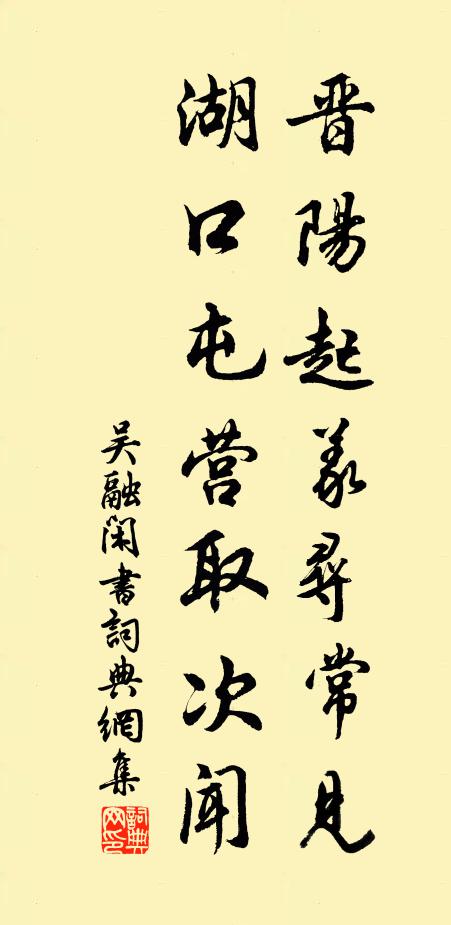 晋陽起義尋常見
湖口屯营取次聞
吴融闲書詞典網集
詞典網印